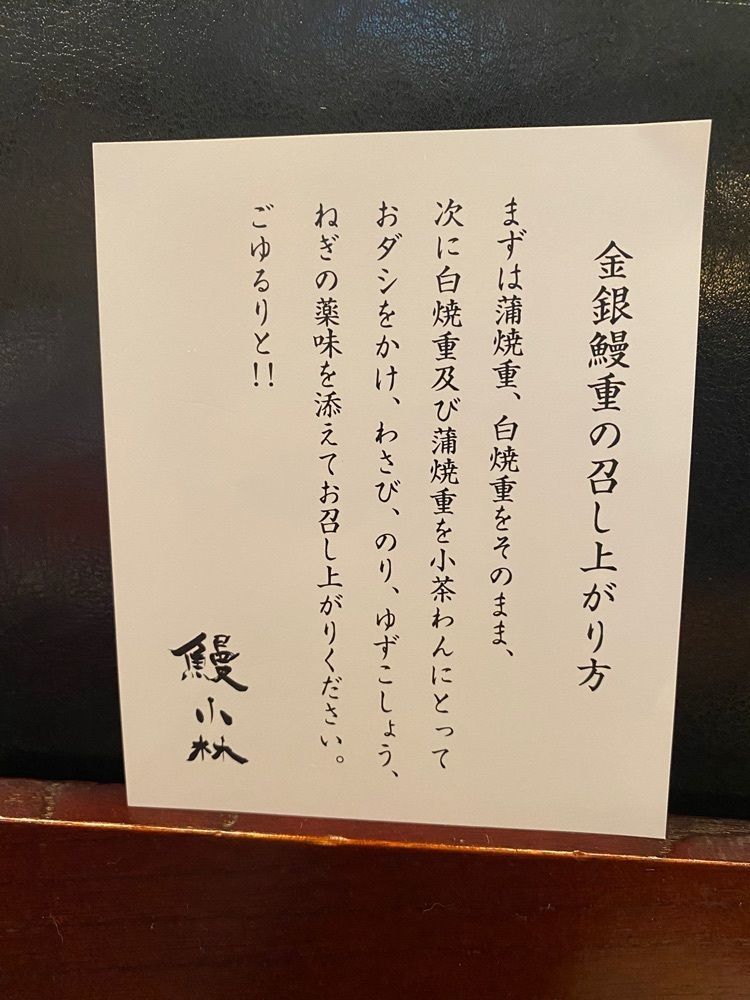 金銀鰻重の召し上がり方
まずは蒲焼重、白焼重をそのまま、
次に白焼重及び蒲焼重を小茶わんにとって
おダシをかけ、わさび、のり、ゆずこしょう、
ねぎの薬味を添えてお召し上がりください。
ごゆるりと!!
鰻小林